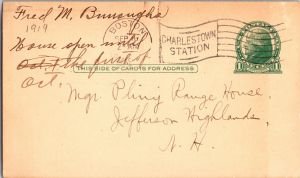 Fred M. Burroughs
1919
BOSTON
SEP
CHARLESTOWN
STATION
House open until
Oct. the first of
Oct.
THIS SIDE OF CARD IS FOR ADDRESS
Mgr. Pliny Range House
Jefferson Highlands,
N. H.